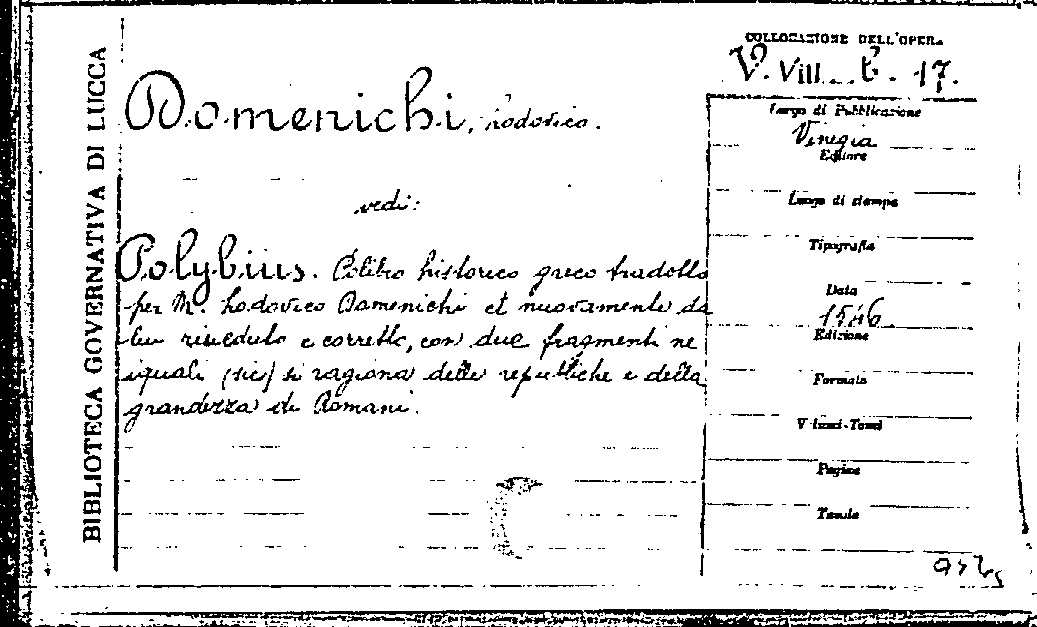 BIBLIOTECA GOVERNATIVA DI LUCCA
COLLOCAZIONE DELL'OPERA
V. VIII. b. 17.
Domenichi, Lodovico.
vedi:
Polybius. Polibio historico greco tradotto
per M. Lodovico Domenichi et nuovamente da
lui riveduto e corretto, con due fragmenti ne
iquali (sic) si ragiona delle republiche e della
grandezza di Romani.
Luogo di Pubblicazione
Vinegia
Editore
Luogo di stampa
Tipografia
Data
1546
Edizione
Formato
Volumi-Tomi
Pagine
Tavole